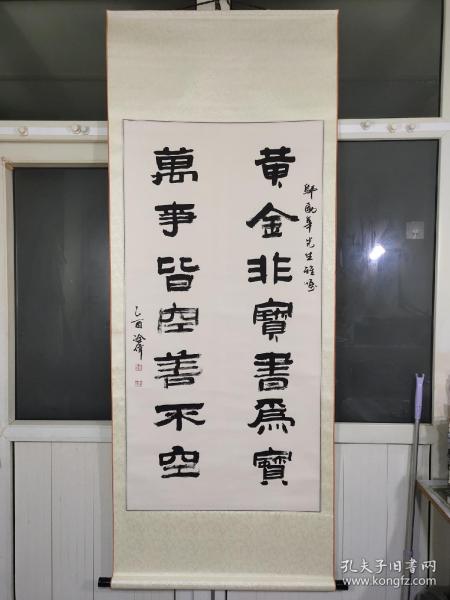 黄金非寶書爲寶
萬事皆空善不空
先生雅屬
乙酉
孔夫子旧书网
www.kongfz.com